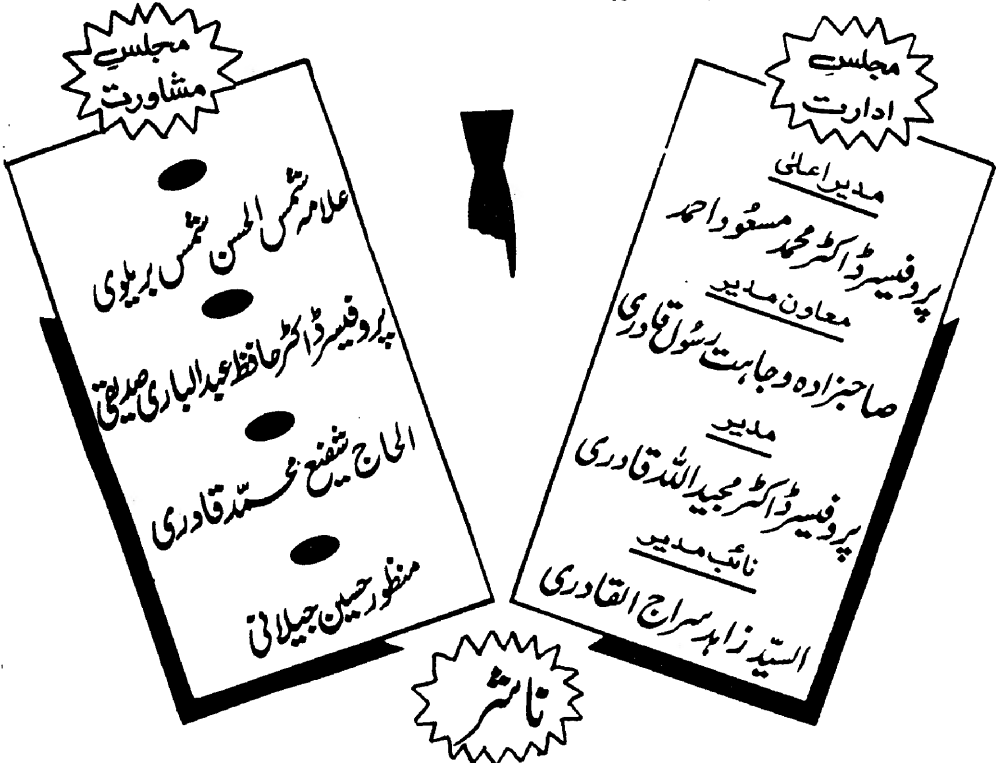 مجلسِ
ادارت
مدیر اعلیٰ
پروفیسر ڈاکٹر محمد مسعود احمد
معاون مدیر
صاحبزادہ وجاہت رسُول قادری
مدیر
پروفیسر ڈاکٹر مجید اللہ قادری
نائب مدیر
السیّد زاہد سراج القادری
مجلسِ
مشاورت
علامہ شمس الحسن شمس بریلوی
پروفیسر ڈاکٹر حافظ عبدالباری صدیقی
الحاج شفیع محمّد قادری
منظور حسین جیلانی
ناشر